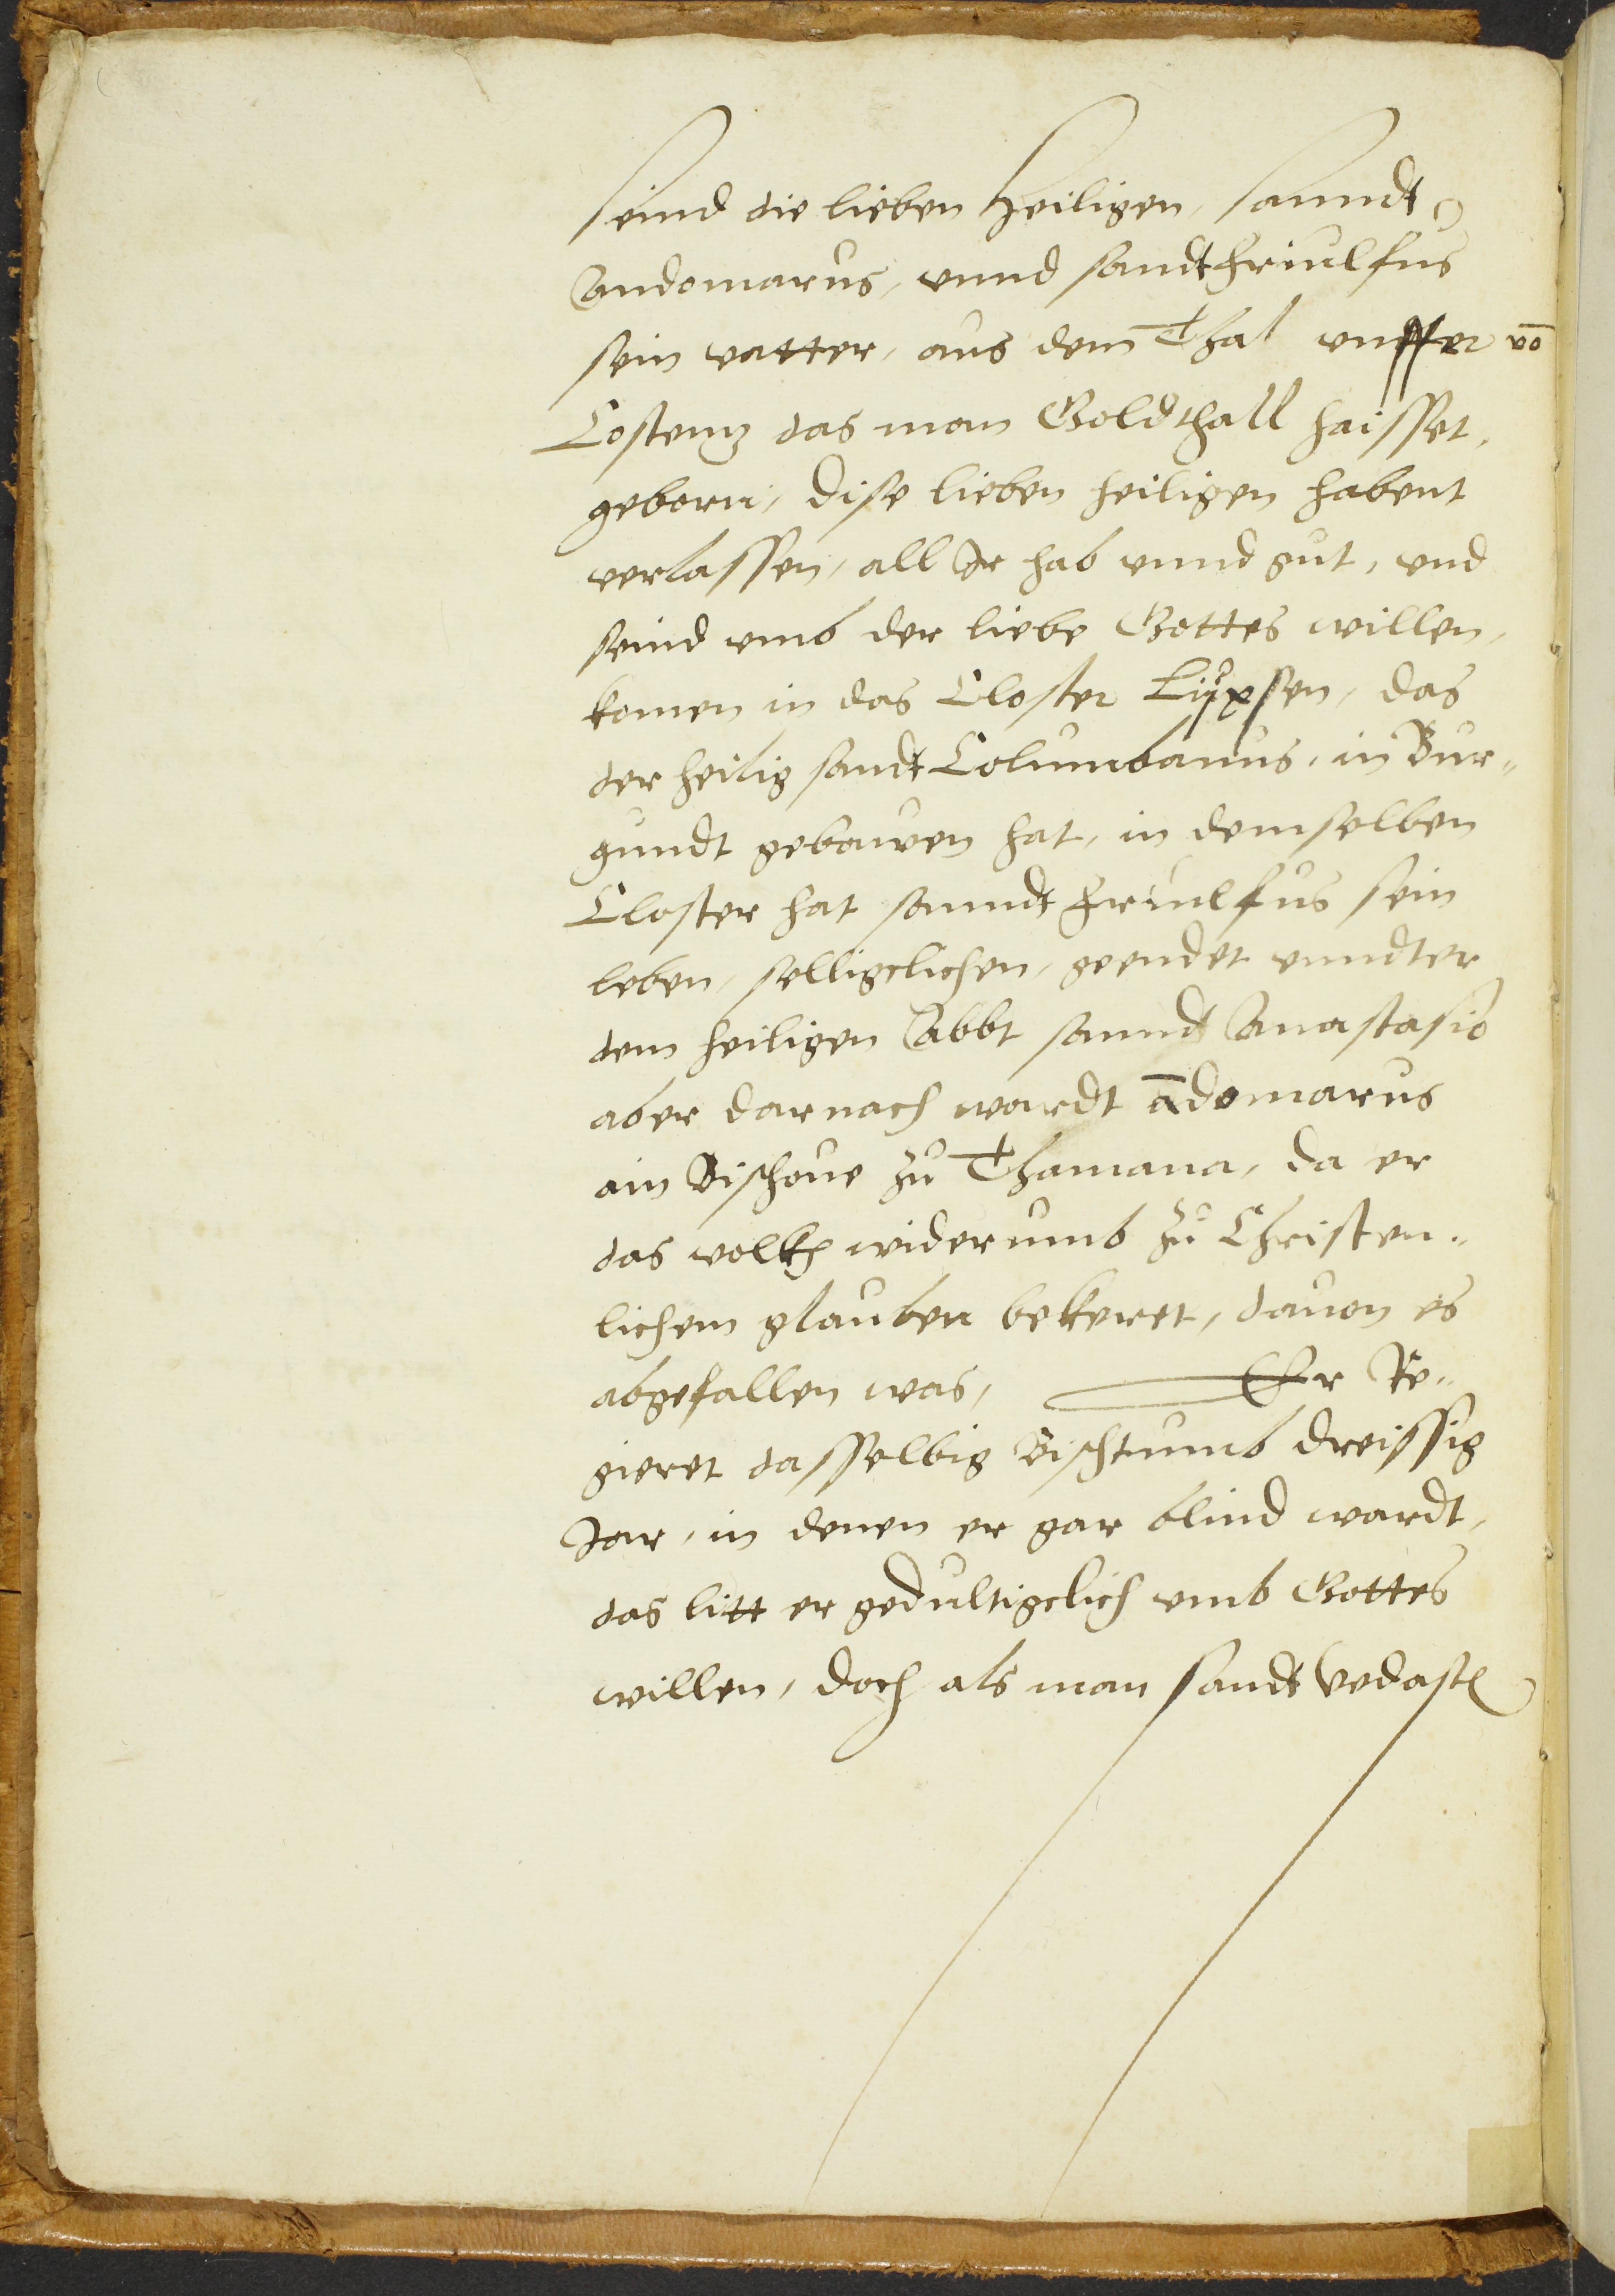 seind die lieben Heiligen, sanndt
Andomarus, vnnd sandt Friulfus
sein vatter, aus dem Thal vnsser vō
Costentz das man Goldthall haisset,
geborn, dise lieben heiligen habent
verlassen, all Ir hab vnnd gut, vnd
seind vmb der liebe Gottes willen,
komen in das Closter Luxsen, das
der heilig sandt Columbanus, in Bur¬
gundt gebawen hat, in demselben
Closter hat sanndt Friulfus sein
leben, selligclichen, geendet vnndter
dem heiligen Abbt sannd Anastasio
aber darnach wardt ādomarus
ain Bischoue zu Thamana, da er
das volkh widerumb zu Christen¬
lichem glauben bekeret, dauon es
abgefallen was, Er Re¬
gieret dasselbig Bischtumb dreissig
Jar, in denen er gar blind wardt,
das litt er gedultigclich vmb Gottes
willen, doch als man sandt Vedast